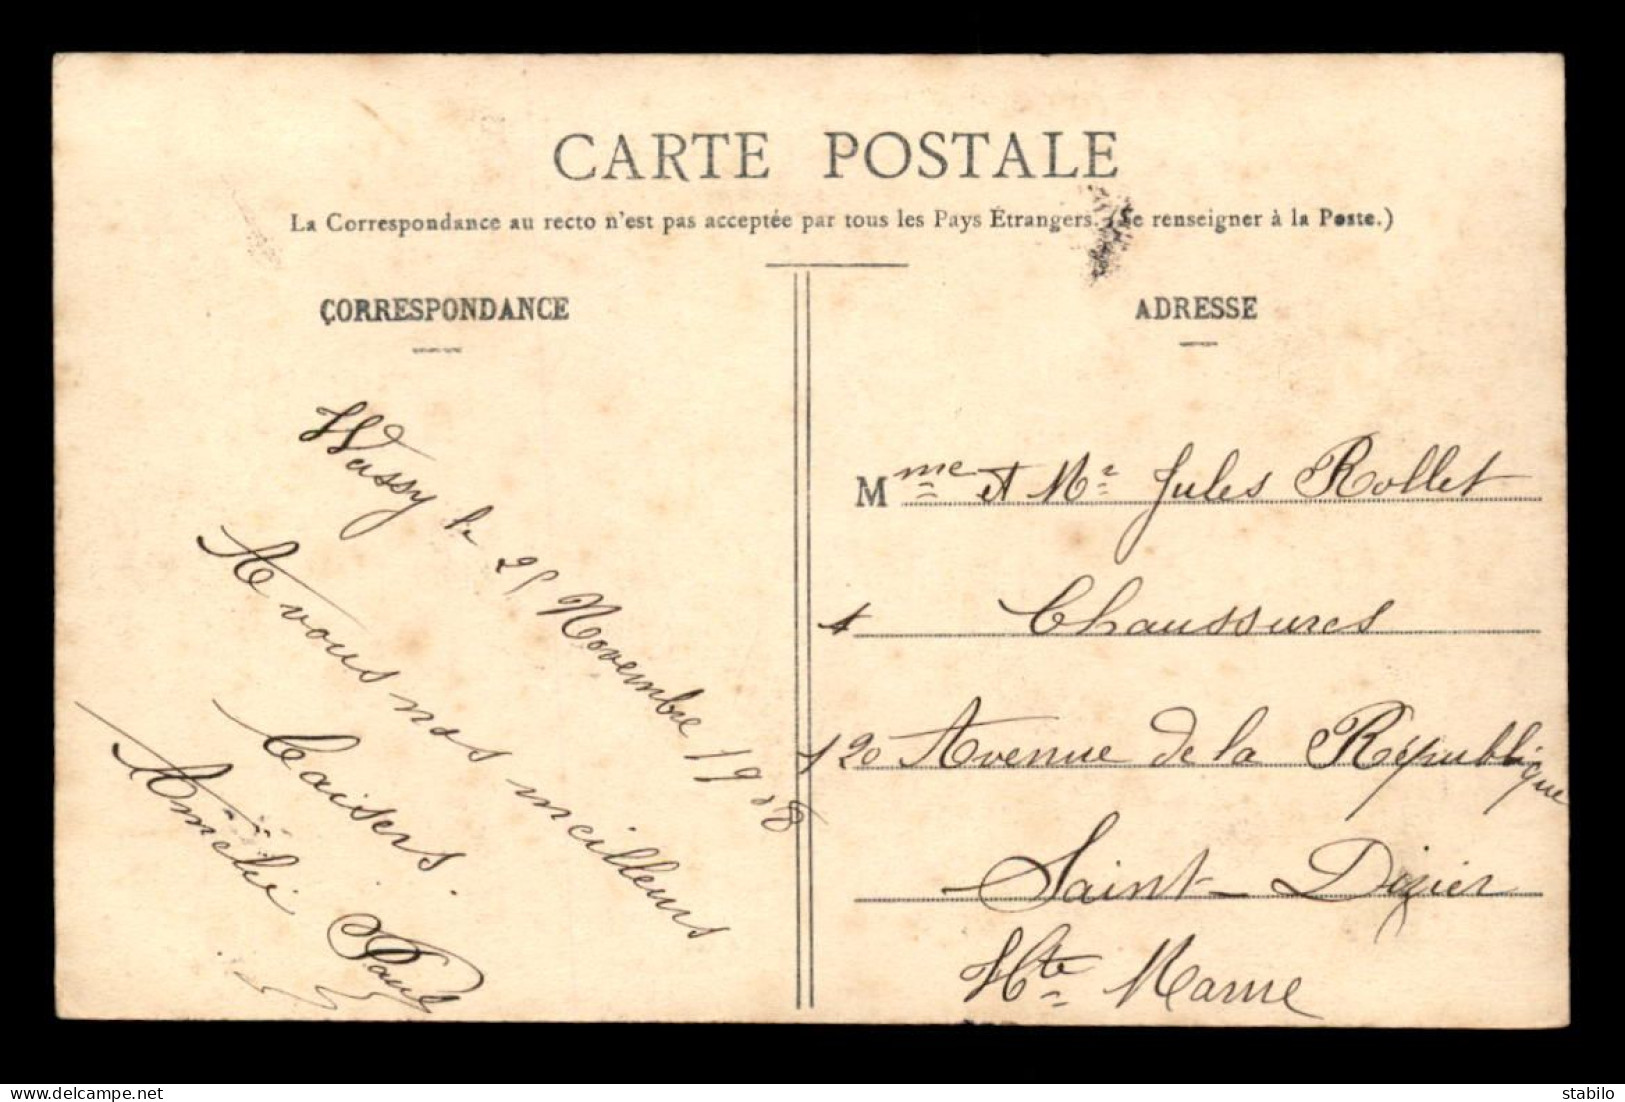 CARTE POSTALE
La Correspondance au recto n'est pas acceptée par tous les Pays Étrangers. (Se renseigner à la Poste.)
CORRESPONDANCE
Wassy le 25 Novembre 1908
A vous nos meilleurs
baisers.
Amélie Paul
ADRESSE
Mme et Mr Jules Rollet
Chaussures
120 Avenue de la République
Saint-Dizier
Hte Marne
delcampe.net
stabilo